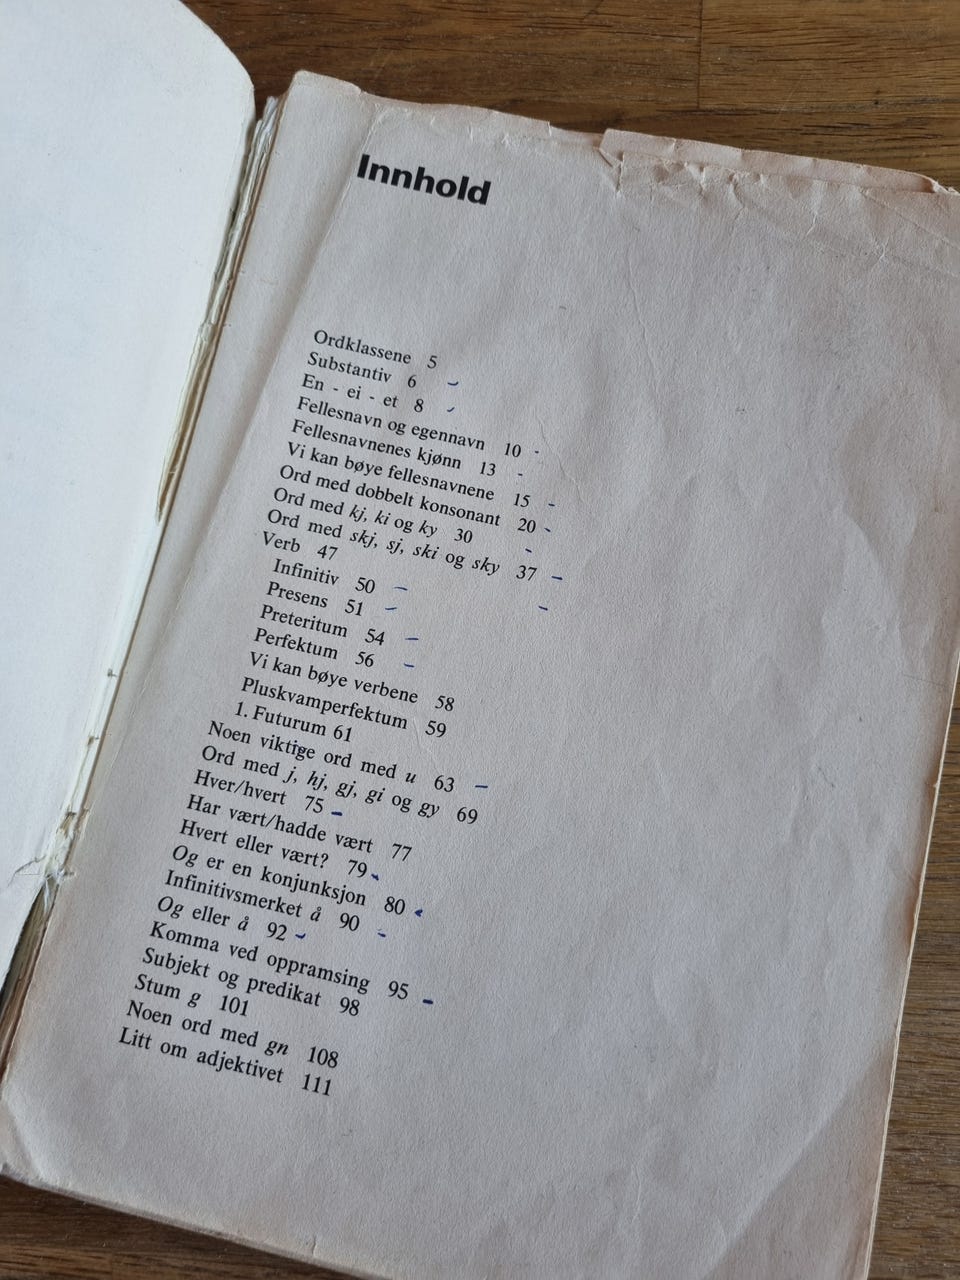 Innhold
Ordklassene 5
Substantiv 6
En - ei - et 8
Fellesnavn og egennavn 10
Fellesnavnenes kjønn 13
Vi kan bøye fellesnavnene 15
Ord med dobbelt konsonant 20
Ord med kj, ki og ky 30
Ord med skj, sj, ski og sky 37
Verb 47
Infinitiv 50
Presens 51
Preteritum 54
Perfektum 56
Vi kan bøye verbene 58
Pluskvamperfektum 59
1. Futurum 61
Noen viktige ord med u 63
Ord med j, hj, gj, gi og gy 69
Hver/hvert 75
Har vært/hadde vært 77
Hvert eller vært? 79
Og er en konjunksjon 80
Infinitivsmerket å 90
Og eller å 92
Komma ved oppramsing 95
Subjekt og predikat 98
Stum g 101
Noen ord med gn 108
Litt om adjektivet 111